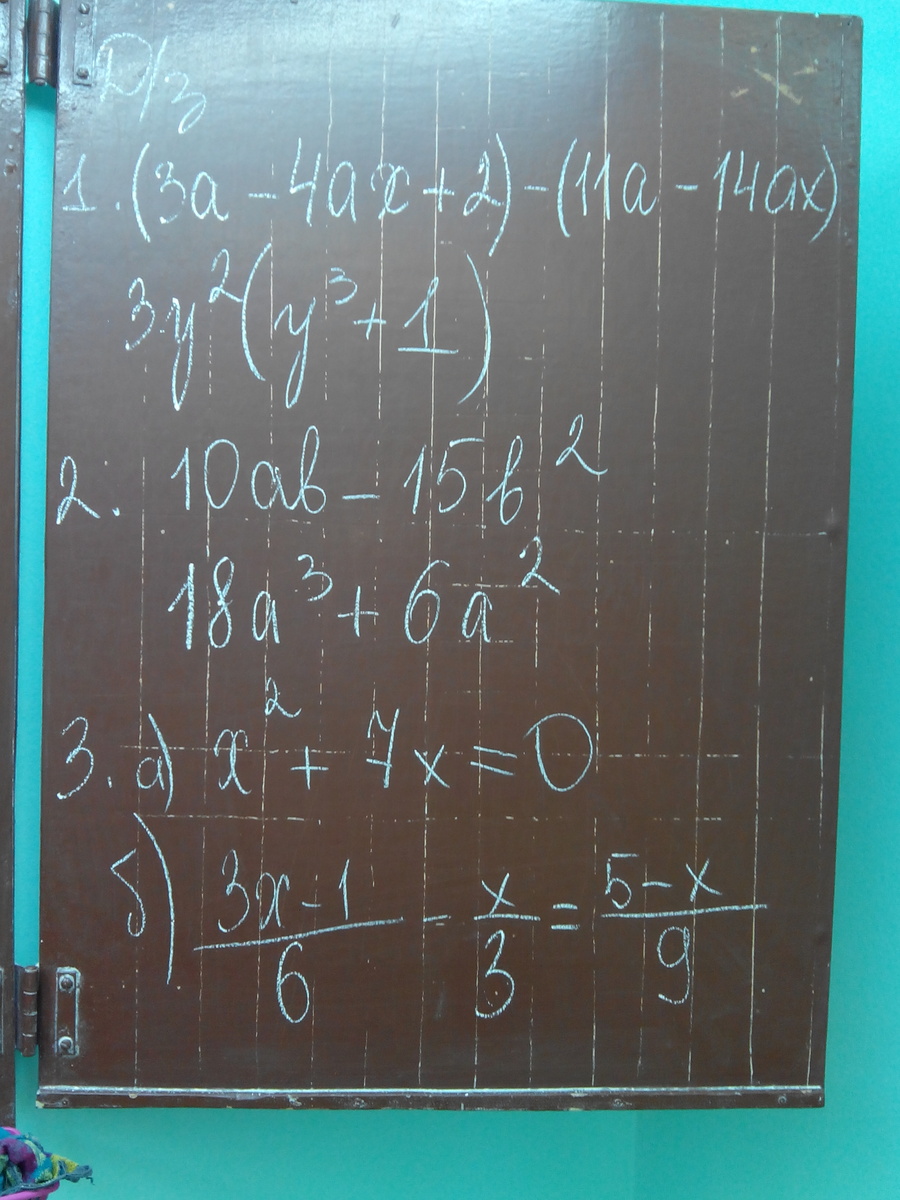 Д/з
1. (3a - 4ax + 2) - (11a - 14ax)
3y²(y³ + 1)
2. 10ab - 15b²
18a³ + 6a²
3. а) x² + 7x = 0
б) (3x - 1)/6 - x/3 = (5 - x)/9